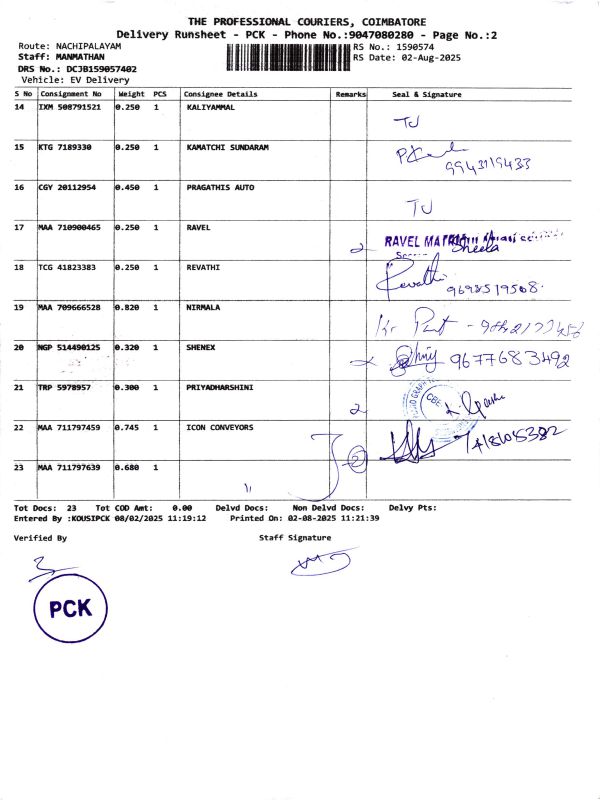 THE PROFESSIONAL COURIERS, COIMBATORE
Delivery Runsheet - PCK - Phone No.:9047080280 - Page No.:2
Route: NACHIPALAYAM RS No.: 1590574
Staff: MANMATHAN RS Date: 02-Aug-2025
DRS No.: DCJB159057402
Vehicle: EV Delivery
S No Consignment No Weight PCS Consignee Details Remarks Seal & Signature
14 IXM 508791521 0.250 1 KALIYAMMAL
TJ
15 KTG 7189330 0.250 1 KAMATCHI SUNDARAM
9943119433
16 CGY 20112954 0.450 1 PRAGATHIS AUTO
TJ
17 MAA 710900465 0.250 1 RAVEL
2 RAVEL
Sheela
18 TCG 41823383 0.250 1 REVATHI
Revathi 9698519508.
19 MAA 709666528 0.820 1 NIRMALA
20 NGP 514490125 0.320 1 SHENEX
9677683492
21 TRP 5978957 0.300 1 PRIYADHARSHINI
2 CBE
22 MAA 711797459 0.745 1 ICON CONVEYORS
2
23 MAA 711797639 0.680 1
"
Tot Docs: 23 Tot COD Amt: 0.00 Delvd Docs: Non Delvd Docs: Delvy Pts:
Entered By :KOUSIPCK 08/02/2025 11:19:12 Printed On: 02-08-2025 11:21:39
Verified By Staff Signature
PCK